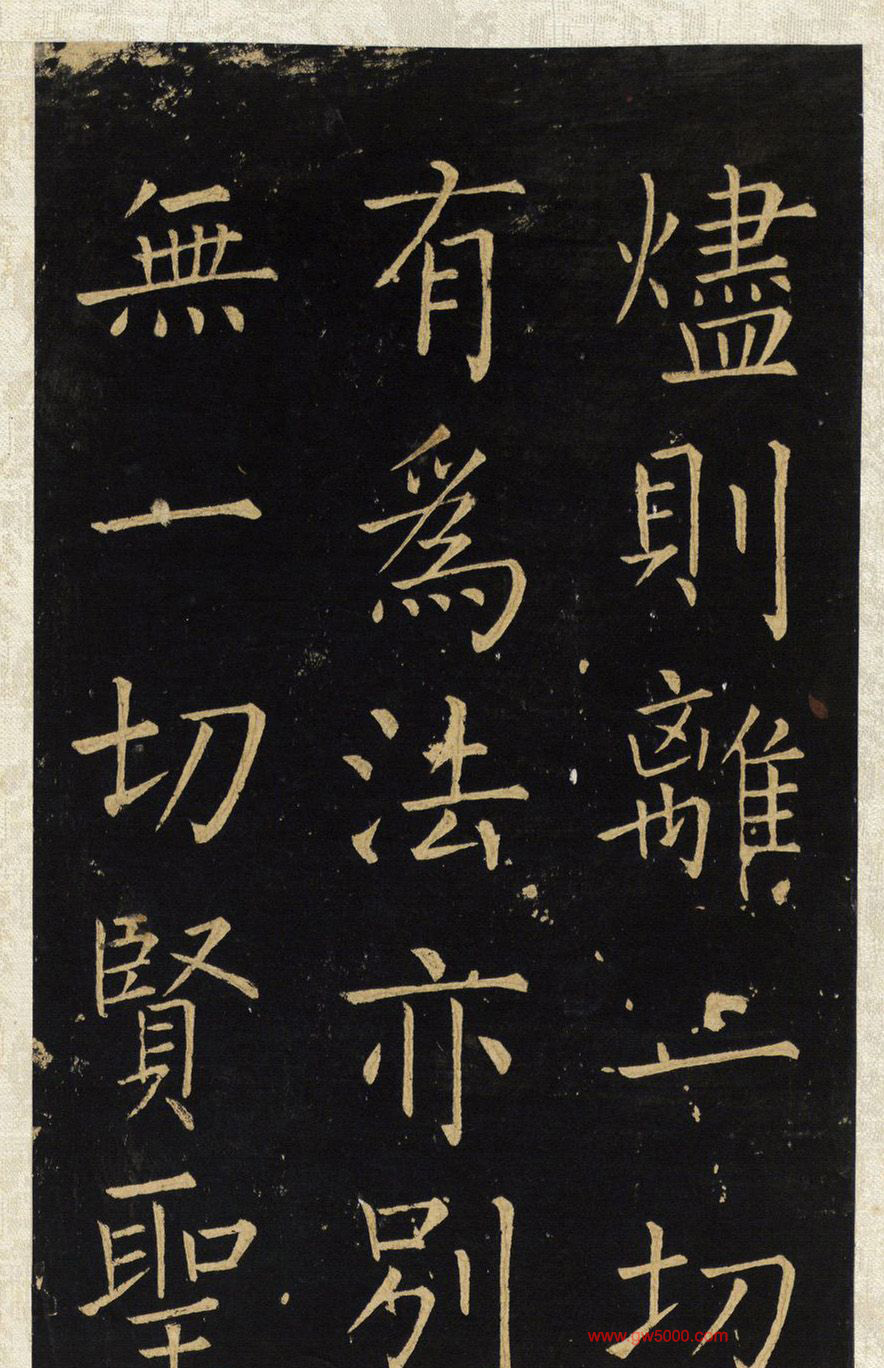 燼則離一切
有為法亦別
無一切賢聖
www.gw5000.com